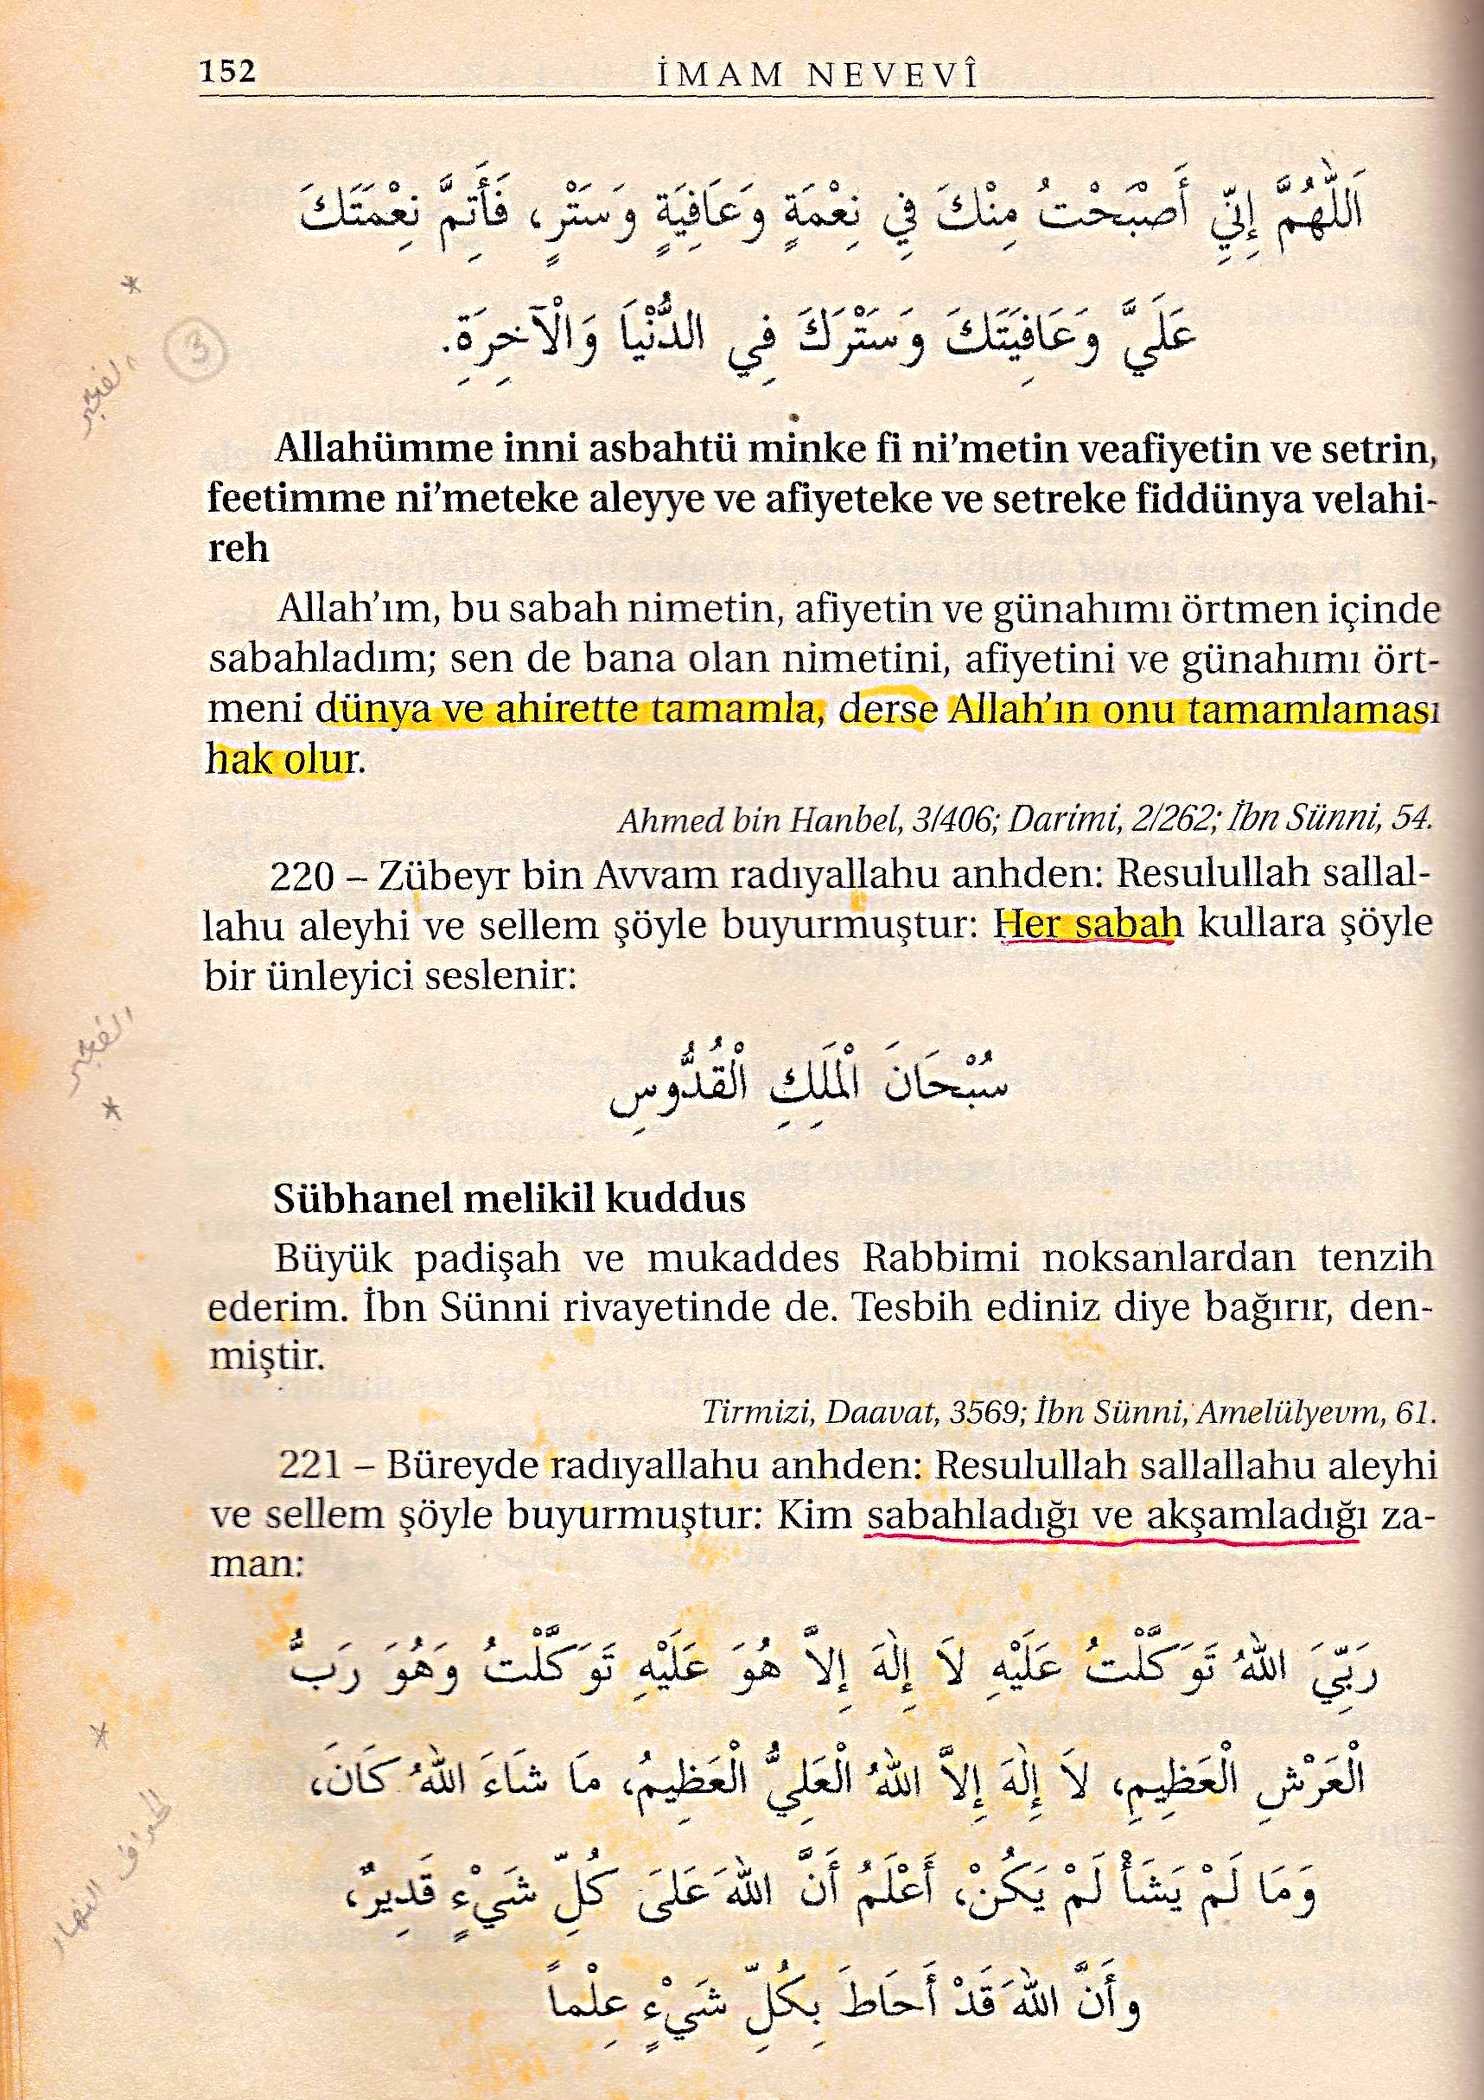 152
İMAM NEVEVÎ
اَللّٰهُمَّ إِنِّي أَصْبَحْتُ مِنْكَ فِي نِعْمَةٍ وَعَافِيَةٍ وَسَتْرٍ، فَأَتِمَّ نِعْمَتَكَ
عَلَيَّ وَعَافِيَتَكَ وَسَتْرَكَ فِي الدُّنْيَا وَالْآخِرَةِ.
*
3
الفجر
Allahümme inni asbahtü minke fi ni’metin veafiyetin ve setrin,
feetimme ni’meteke aleyye ve afiyeteke ve setreke fiddünya velahi-
reh
Allah’ım, bu sabah nimetin, afiyetin ve günahımı örtmen içinde
sabahladım; sen de bana olan nimetini, afiyetini ve günahımı ört-
meni dünya ve ahirette tamamla, derse Allah’ın onu tamamlaması
hak olur.
Ahmed bin Hanbel, 3/406; Darimi, 2/262; İbn Sünni, 54.
220 – Zübeyr bin Avvam radıyallahu anhden: Resulullah sallal-
lahu aleyhi ve sellem şöyle buyurmuştur: Her sabah kullara şöyle
bir ünleyici seslenir:
الفجر
*
سُبْحَانَ الْمَلِكِ الْقُدُّوسِ
Sübhanel melikil kuddus
Büyük padişah ve mukaddes Rabbimi noksanlardan tenzih
ederim. İbn Sünni rivayetinde de. Tesbih ediniz diye bağırır, den-
miştir.
Tirmizi, Daavat, 3569; İbn Sünni, Amelülyevm, 61.
221 – Büreyde radıyallahu anhden: Resulullah sallallahu aleyhi
ve sellem şöyle buyurmuştur: Kim sabahladığı ve akşamladığı za-
man:
رَبِّيَ اللّٰهُ تَوَكَّلْتُ عَلَيْهِ لَا إِلٰهَ إِلاَّ هُوَ عَلَيْهِ تَوَكَّلْتُ وَهُوَ رَبُّ
الْعَرْشِ الْعَظِيمِ، لَا إِلٰهَ إِلاَّ اللّٰهُ الْعَلِيُّ الْعَظِيمُ، مَا شَاءَ اللّٰهُ كَانَ،
وَمَا لَمْ يَشَأْ لَمْ يَكُنْ، أَعْلَمُ أَنَّ اللّٰهَ عَلَىَ كُلِّ شَيْءٍ قَدِيرٌ،
وأَنَّ اللّٰهَ قَدْ أَحَاطَ بِكُلِّ شَيْءٍ عِلْماً
*
النهار